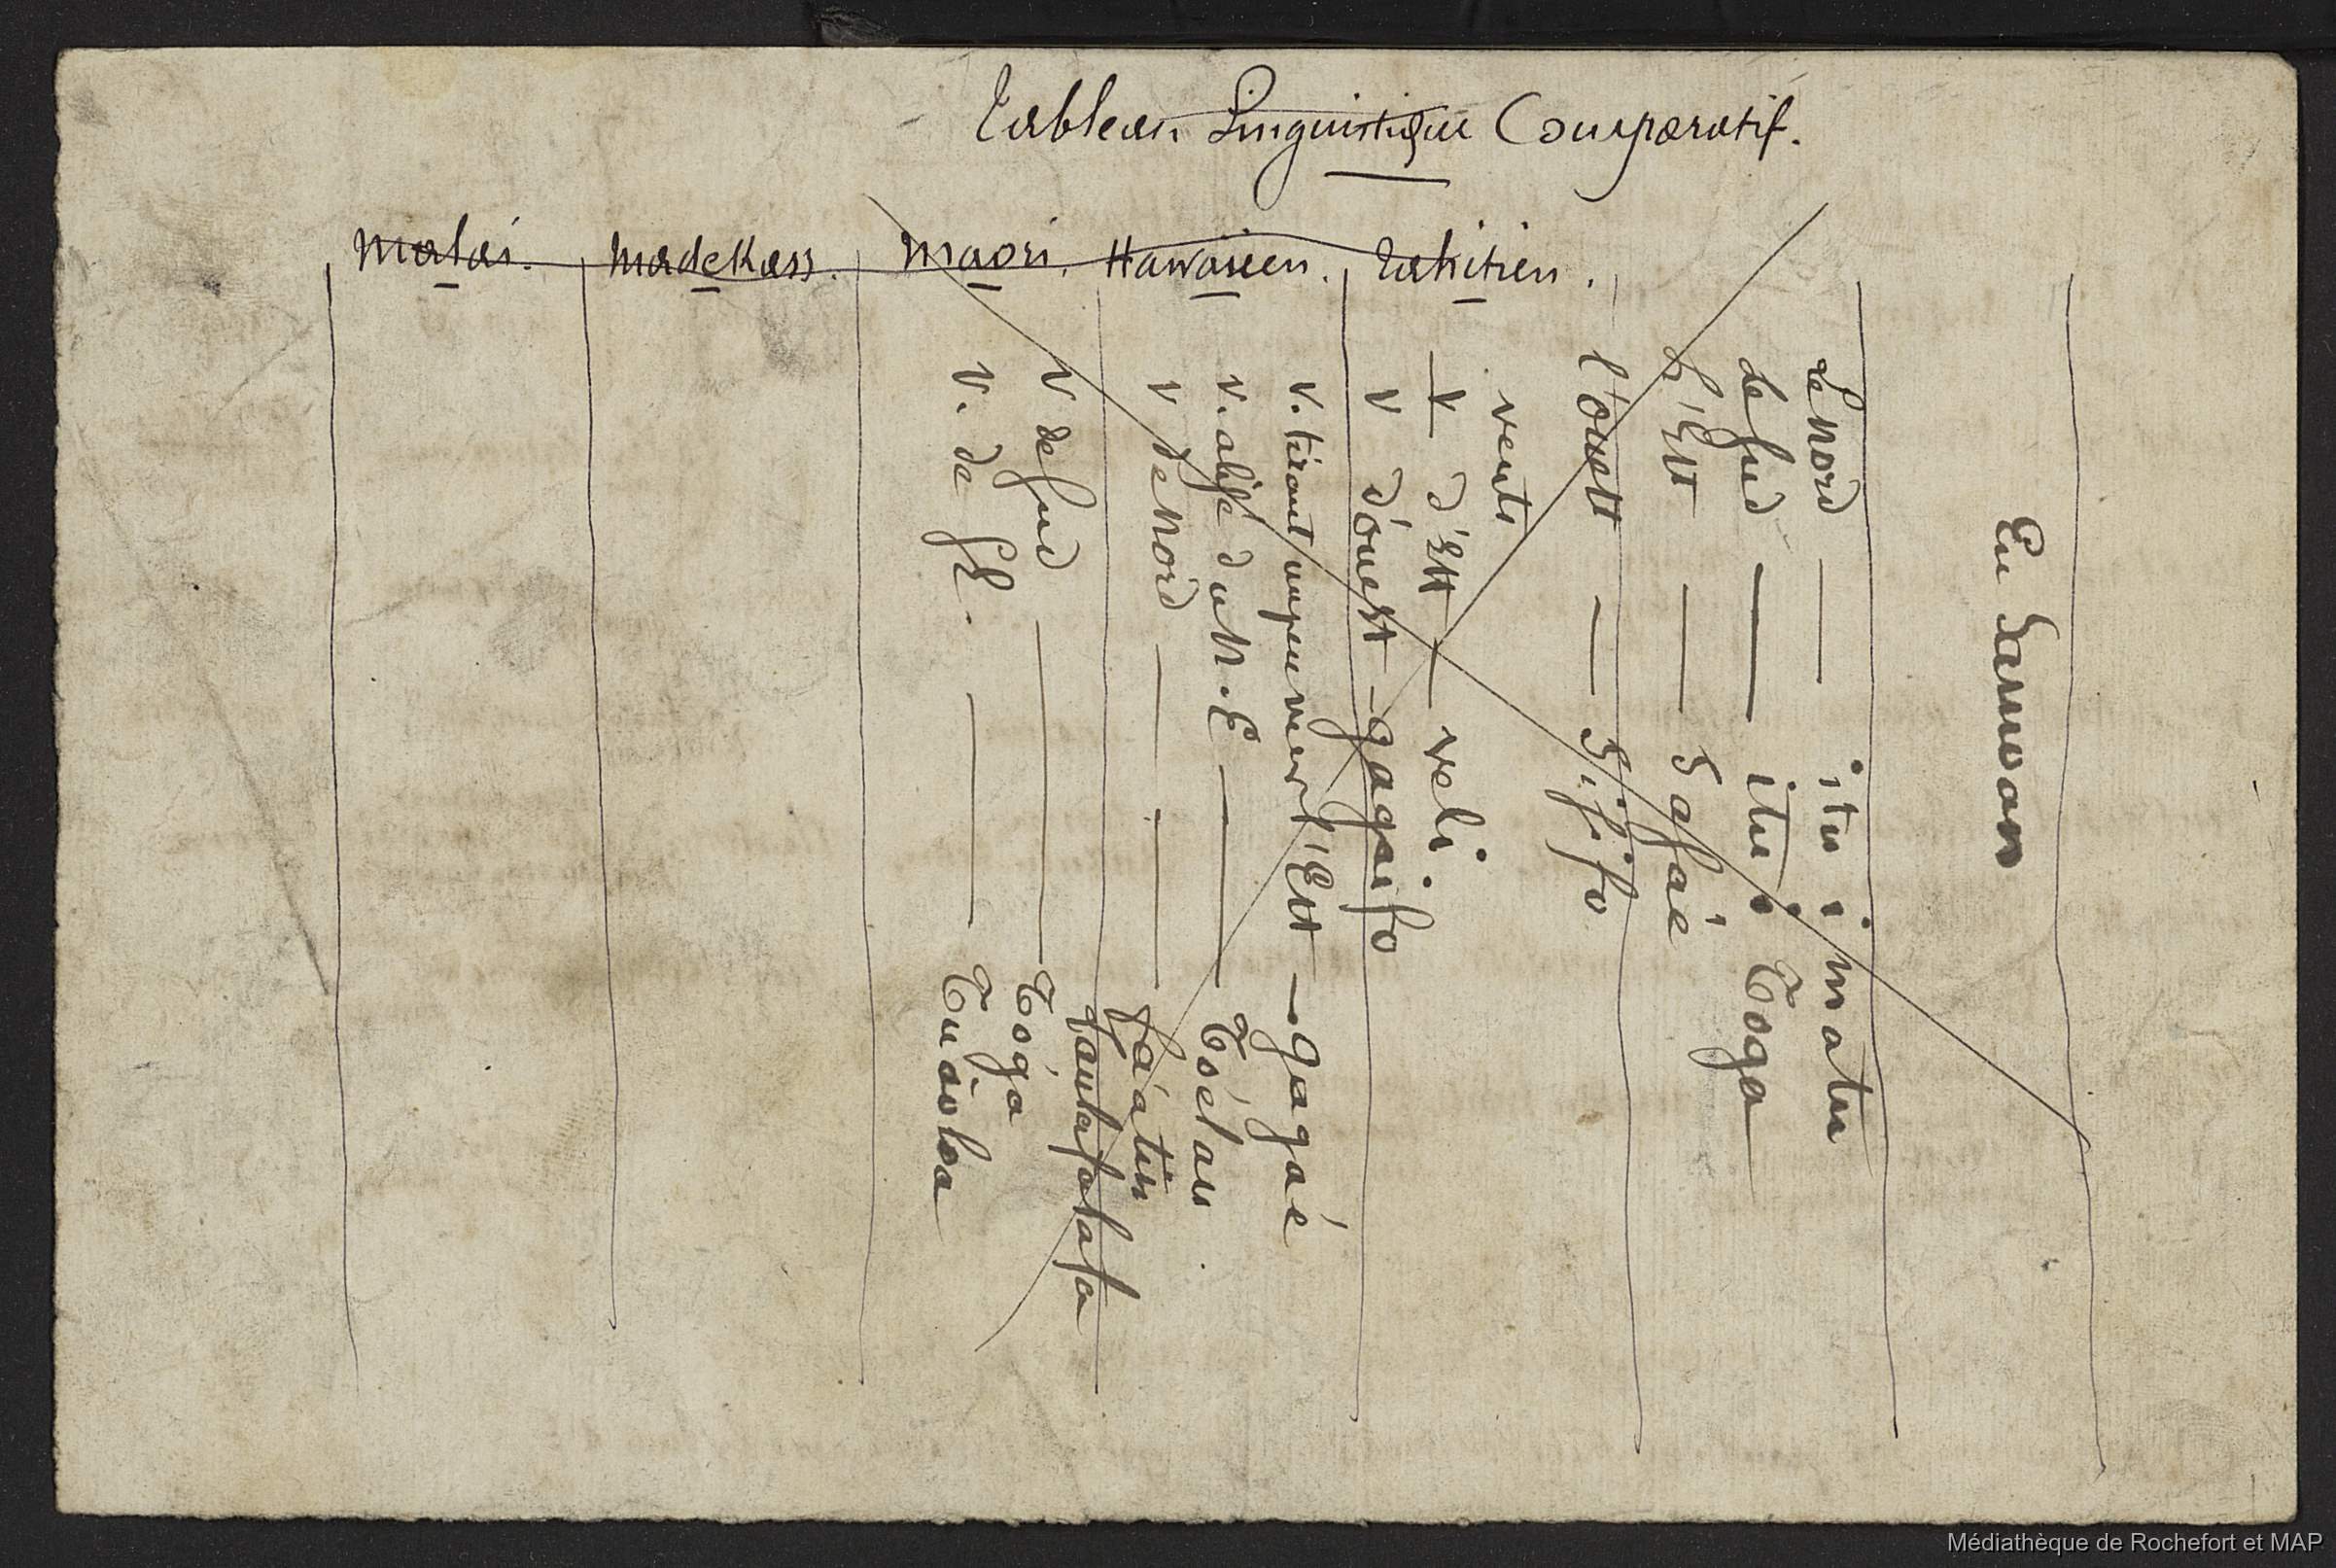 Tableau Linguistique Comparatif.
Malai. Madekass. Maori. Hawaiien. Tahitien.
En Samoan
Le Nord — itu i matu
Le Sud — itu i Toga
L'Est — Safaé
l'ouest — Sififo
vents
V d'Est — veli
V d'ouest — gagaifo
V. tirant un peu vers l'Est — gagaé
V. alisé du N.E — Toélau
V de Nord — faátiu
fautafolafa
V de Sud — Toga
V. de SE. — Tuáoloa
Médiathèque de Rochefort et MAP